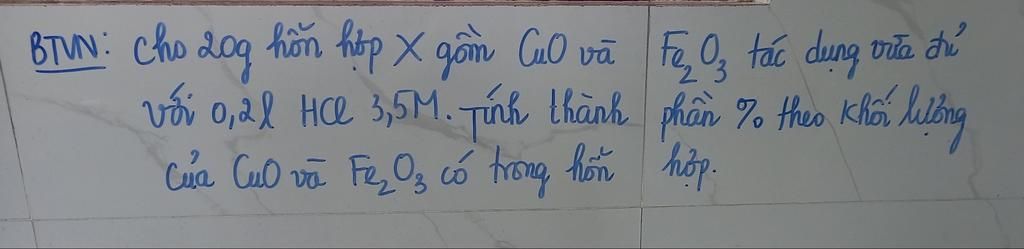 BTVN: Cho 20g hỗn hợp X gồm CuO và Fe₂O₃ tác dụng vừa đủ
với 0,2l HCl 3,5M. Tính thành phần % theo khối lượng
của CuO và Fe₂O₃ có trong hỗn hợp.